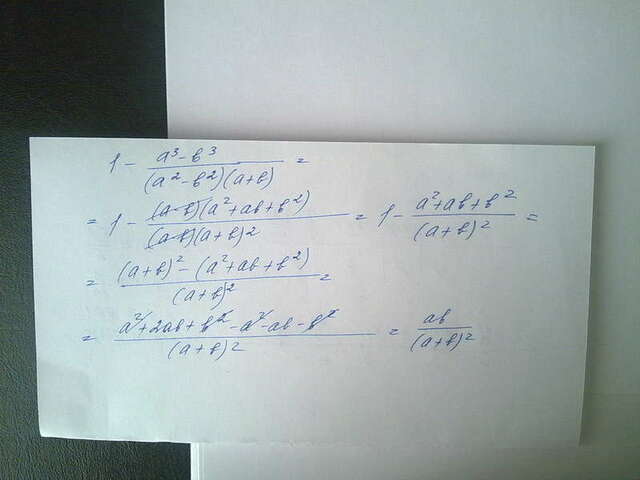 1 - (a³-b³)/((a²-b²)(a+b)) =
= 1 - ((a-b)(a²+ab+b²))/((a-b)(a+b)²) = 1 - (a²+ab+b²)/((a+b)²) =
= ((a+b)² - (a²+ab+b²))/((a+b)²) =
= (a²+2ab+b²-a²-ab-b²)/((a+b)²) = ab/((a+b)²)